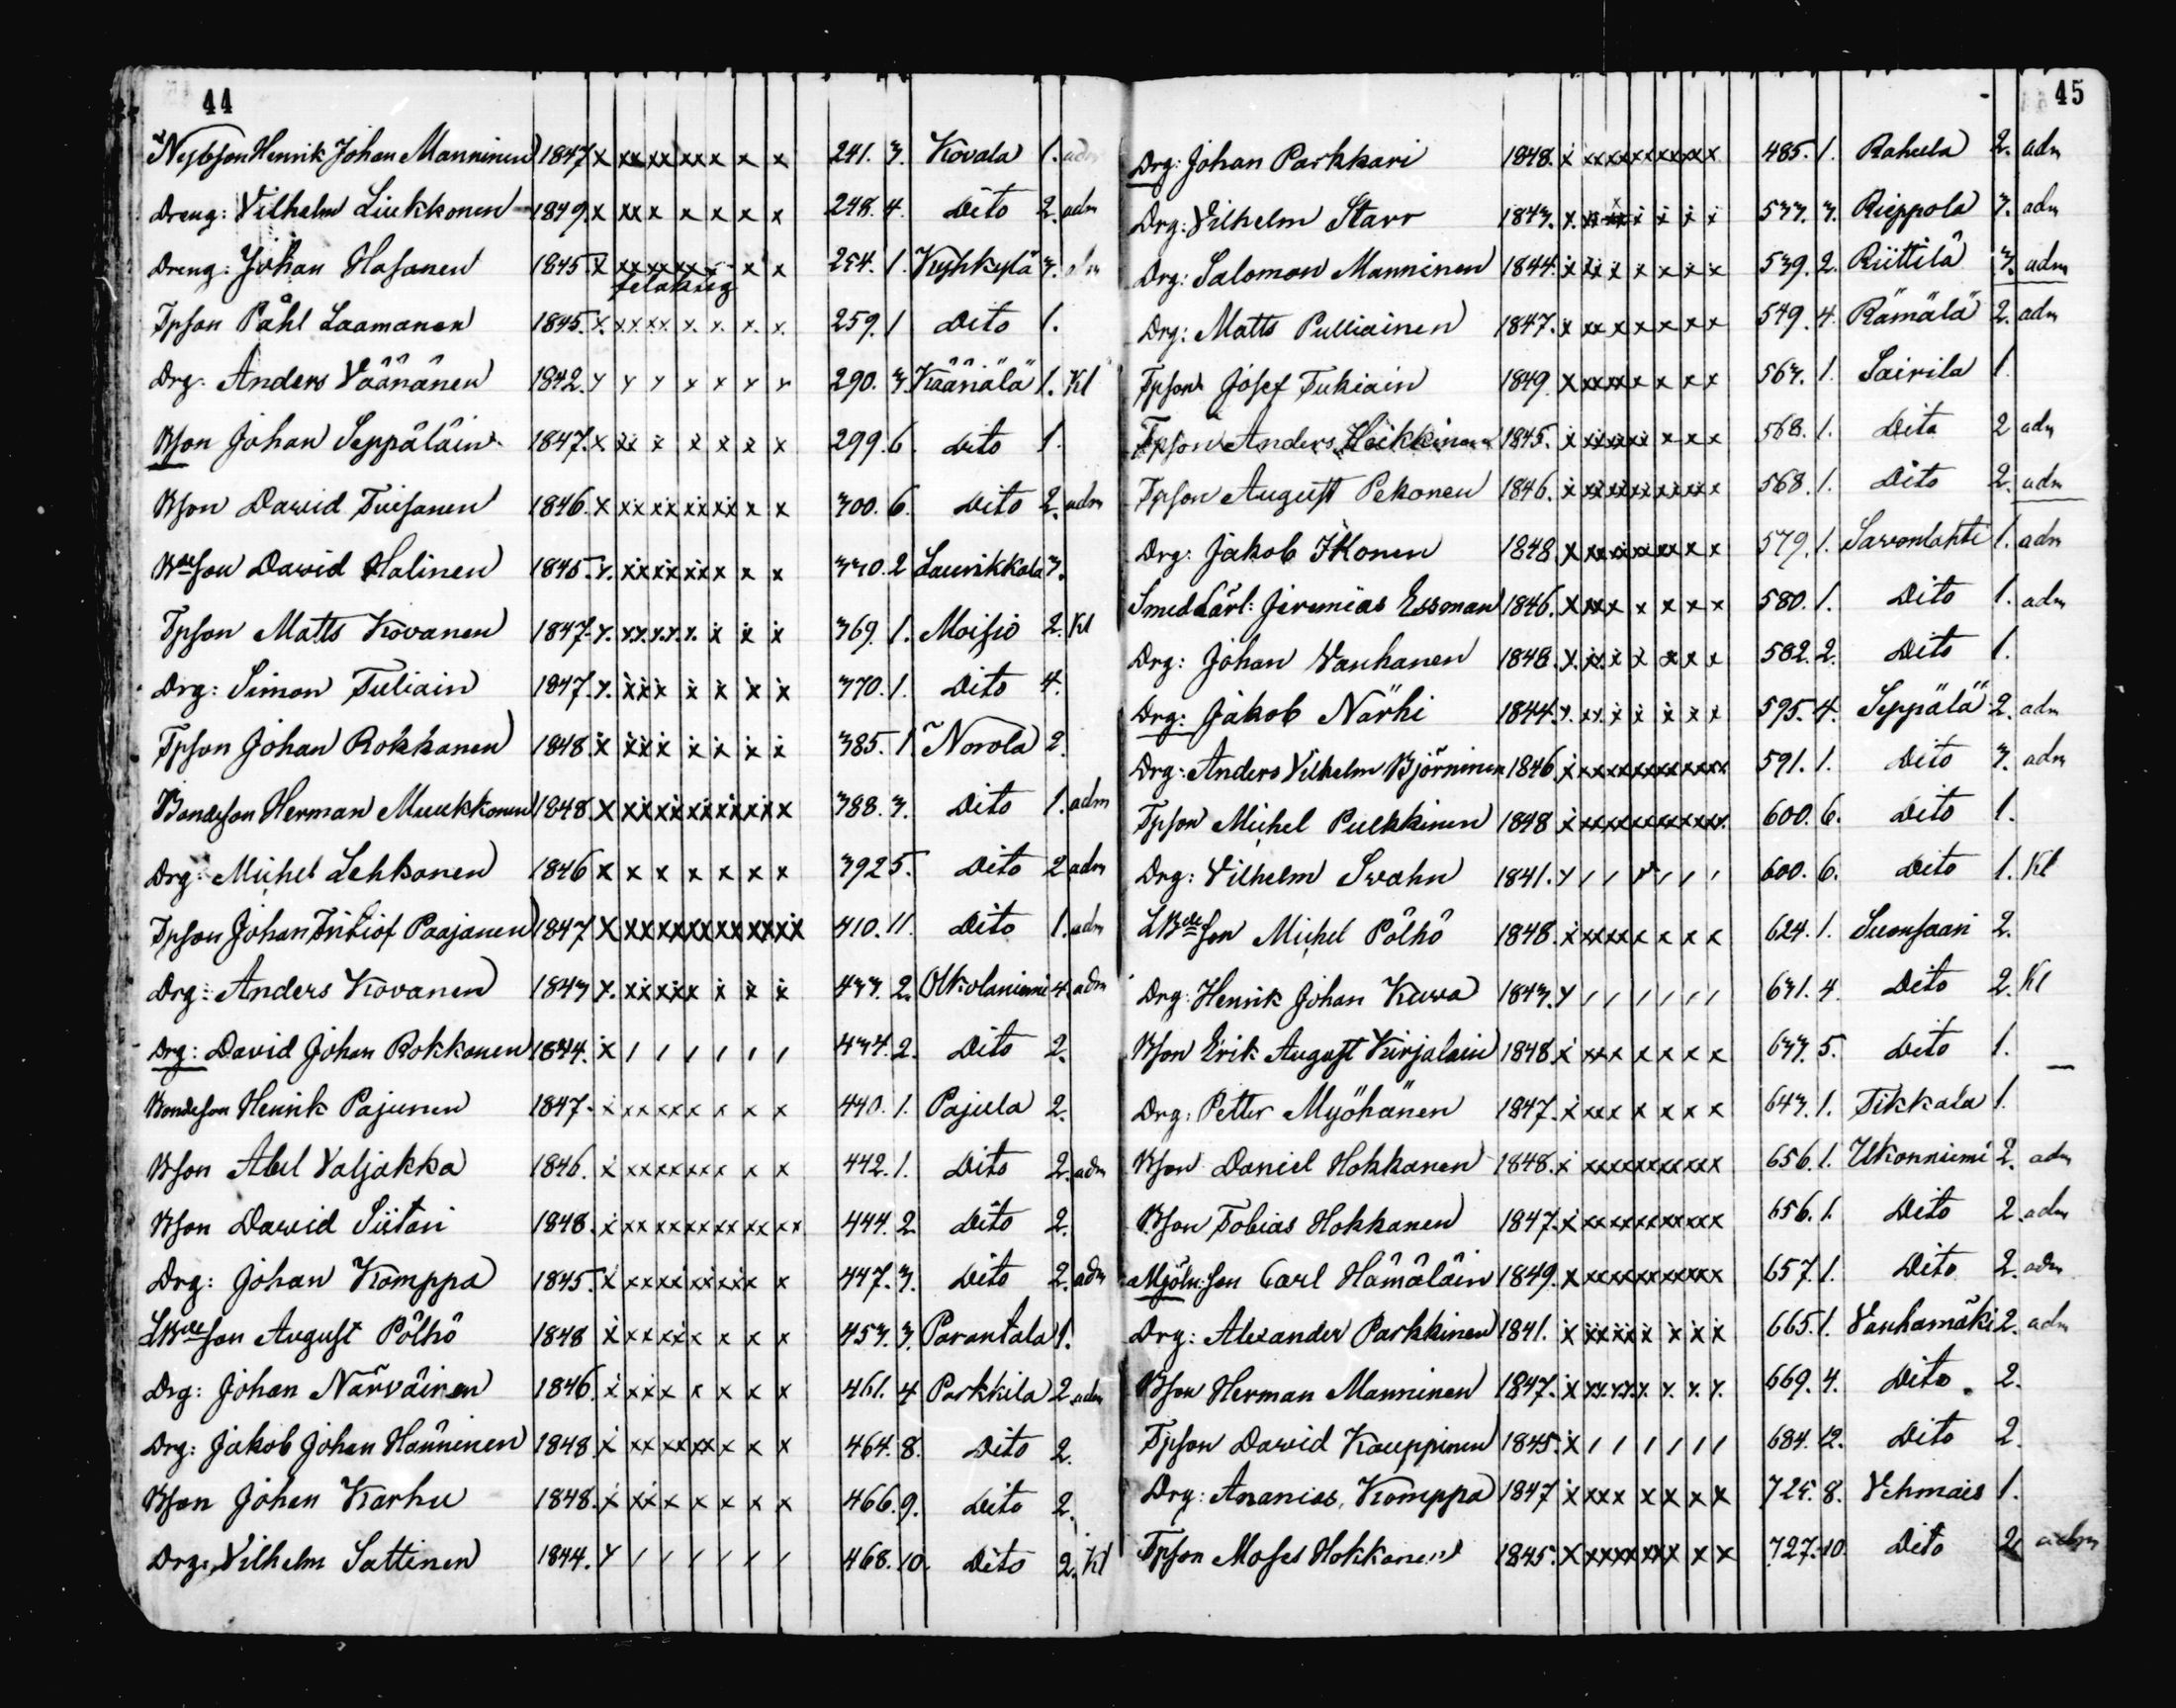 44
Nybson Henrik Johan Manninen 1847 x xx xx xx x x x 241. 3. Kovala 1. adm
Dreng: Vilhelm Liukkonen 1849. x xx x x x x x 248. 4. Dito 2. adm
Dreng: Johan Hasanen 1845. x xx xx xx x x x 254. 1. Kyhkylä 3. adm
Tpson Påhl Laamanen 1845. x. xx xx x. x. x. x. 259. 1 Dito 1.
Drg: Anders Väänänen 1842. x x x x x x x 290. 3. Kääriälä 1. Kl
Bson Johan Seppäläin 1847. x xx x x x x x 299. 6. Dito 1.
Bson David Tuisanen 1846. x xx xx xx xx x x 300. 6. Dito 2. adm
Bdeson David Halinen 1845. x. xx xx xx x x x 330. 2 Laurikkala 3.
Tpson Matts Kovanen 1847. x. x.x. x.x. x. x x x 369. 1. Moisio 2. Kl
Drg: Simon Tuliain 1847. x. xx x x x x x 370. 1. Dito 4.
Tpson Johan Rokkanen 1848. x xx x x x x x 385. 1. Norola 2.
Bondeson Herman Muukkonen 1848. x xx xx xx xx xx x 388. 3. Dito 1. adm
Drg: Michel Lehkonen 1846 x x x x x x x 392 5. Dito 2 adm
Tpson Johan Fritiof Paajanen 1847 x xx xx xx xx xx xx 410. 11. Dito 1. adm
Drg: Anders Kovanen 1843 x. xx xx x x x x 433. 2. Olkolaniemi 4. adm
Drg: David Johan Rokkanen 1844. x / / / / / / 434. 2. Dito 2.
Bondeson Henrik Pajunen 1847. x xx xx x x x x 440. 1. Pajula 2.
Bson Abel Valjakka 1846. x xx xx xx x x x 442. 1. Dito 2. adm
Bson David Siitari 1848. x xx xx xx xx xx xx 444. 2. Dito 2.
Drg: Johan Komppa 1845. x xx xx xx xx x x 447. 3. Dito 2. adm
LBdeson August Pölhö 1848 x xx xx x x x x 453. 3. Parantala 1.
Drg: Johan Närväinen 1846. x xx x x x x x 461. 4 Parkkila 2. adm
Drg: Jakob Johan Hänninen 1848. x xx xx xx x x x 464. 8. Dito 2.
Bson Johan Karhu 1848. x xx x x x x x 466. 9. Dito 2.
Drg: Vilhelm Sattinen 1844. x / / / / / / 468. 10. Dito 2. Kl
45
Drg: Johan Parkkari 1848. x xx xx xx xx x x 485. 1. Rahula 2. adm
Drg: Vilhelm Starr 1843. x. xx xx x x x x 533. 3. Rieppola 3. adm
Drg: Salomon Manninen 1844. x xx x x x x x 539. 2. Riittilä 3. adm
Drg: Matts Pulliainen 1847. x xx x x x x x 549. 4. Rämälä 2. adm
Tpson Josef Tukiain 1849. x xx xx x x x x 563. 1. Sairila 1
Tpson Anders Häkkinen 1845. x xx xx xx x x x 568. 1. Dito 2 adm
Tpson August Pekonen 1846. x xx xx xx xx x x 568. 1. Dito 2. adm
Drg: Jakob Ikonen 1848. x xx xx xx x x x 579. 1. Savonlahti 1. adm
Smed Lärl: Jeremias Essman 1846. x xx x x x x x 580. 1. Dito 1. adm
Drg: Johan Vanhanen 1848. x. xx x x x x x 582. 2. Dito 1.
Drg: Jakob Närhi 1844. x. xx x x x x x 595. 4. Seppälä 2. adm
Drg: Anders Vilhelm Björninen 1846. x xx xx xx xx xx xx 591. 1. Dito 3. adm
Tpson Michel Pulkkinen 1848 x xx xx xx xx xx xx 600. 6. Dito 1.
Drg: Vilhelm Svahn 1841. x / / x / / / 600. 6. Dito 1. Kl
LBdeson Michel Pölhö 1848. x xx xx x x x x 624. 1. Suonsaari 2.
Drg: Henrik Johan Kuva 1843. x / / / / / / 631. 4. Dito 2. Kl
Bson Erik August Kirjalain 1848. x xx x x x x x 633. 5. Dito 1.
Drg: Petter Myöhänen 1847. x xx x x x x x 643. 1. Tikkala 1.
Bson Daniel Hokkanen 1848. x xx xx xx xx xx x 656. 1. Ukonniemi 2. adm
Bson Tobias Hokkanen 1847. x xx xx xx xx xx x 656. 1. Dito 2. adm
Mjöln:son Carl Hämäläin 1849. x xx xx xx xx xx x 657. 1. Dito 2. adm
Drg: Alexander Parkkinen 1841. x xx xx x x x x 665. 1. Vanhamäki 2. adm
Bson Herman Manninen 1847. x x.x. x.x. x. x. x. x. 669. 4. Dito 2.
Tpson David Kauppinen 1845. x / / / / / / 684. 12. Dito 2.
Drg: Ananias Komppa 1847 x xx x x x x x 725. 8. Vehmais 1.
Tpson Moses Hokkanen 1845. x xx xx xx x x x 727. 10. Dito 2. adm